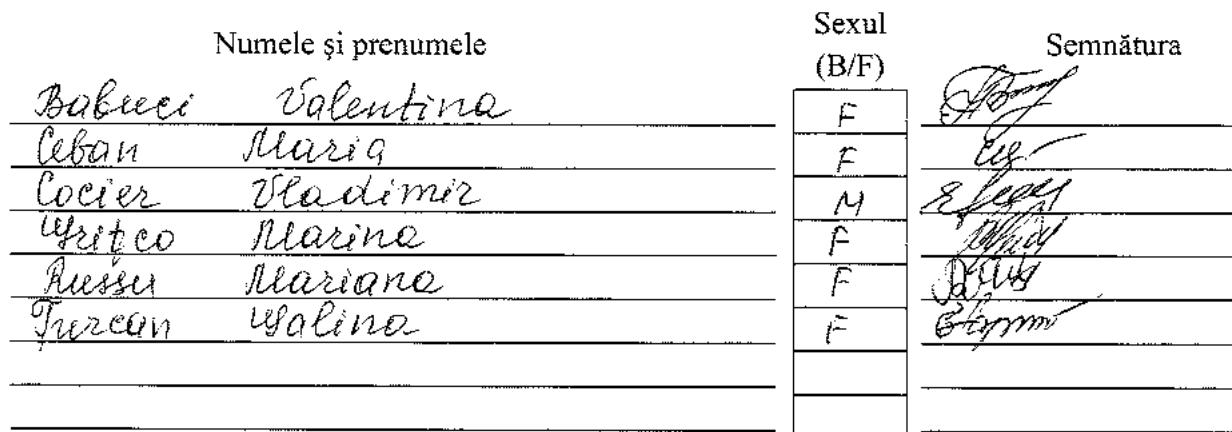 Numele și prenumele Sexul (B/F) Semnătura
Babuci Valentina F
Ceban Maria F
Cocier Vladimir M
Grițco Marina F
Russu Mariana F
Țurcan Galina F